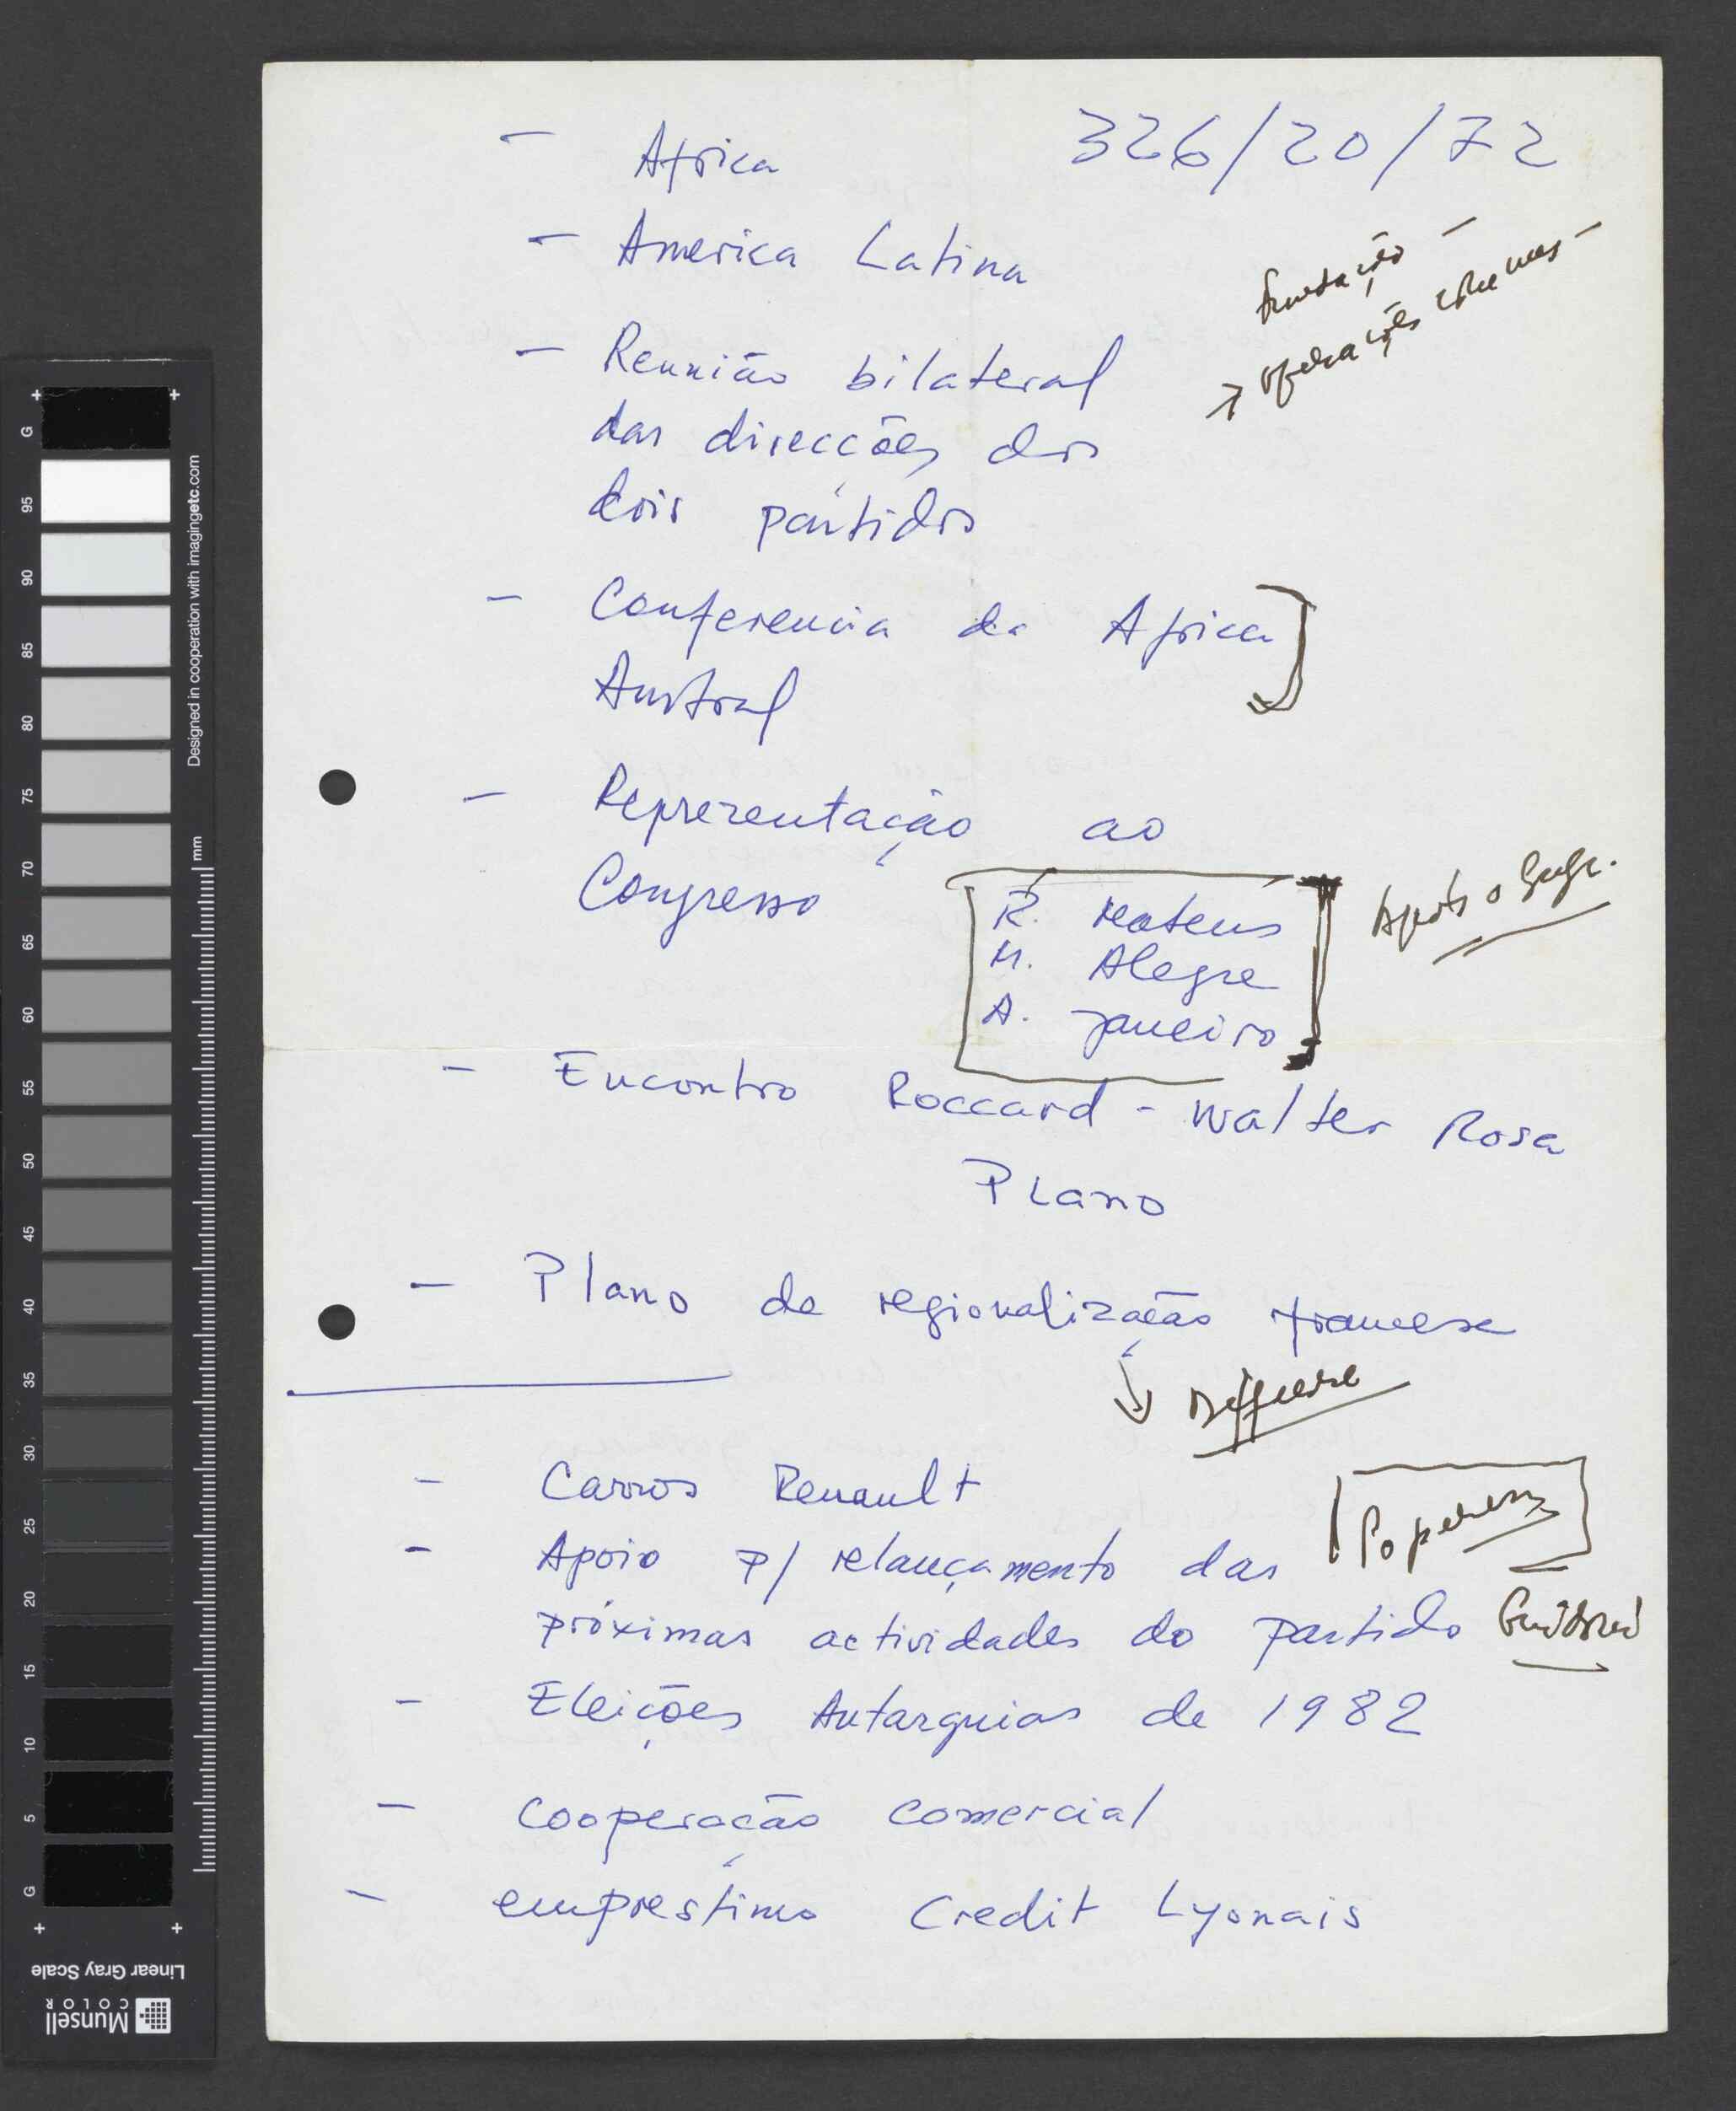 - Africa
326/20/72
- America Latina
Fundação -
→ operações
- Reunião bilateral
das direcções dos
dois partidos
- Conferencia da Africa
Austral
- Representação ao
Congresso
R. Mateus
M. Alegre
A. Janeiro
- Encontro Roccard - Walter Rosa
Plano
- Plano de regionalização francese
↓ Defferre
- Carros Renault
- Apoio p/ relançamento das
Poperen
próximas actividades do partido
- Eleições Autarquias de 1982
- Cooperação comercial
- emprestimo Credit Lyonais
G
95
90
85
80
75
70
65
60
55
50
45
40
35
30
25
20
15
10
5
G
Designed in cooperation with imagingetc.com
mm
Linear Gray Scale
Munsell
COLOR